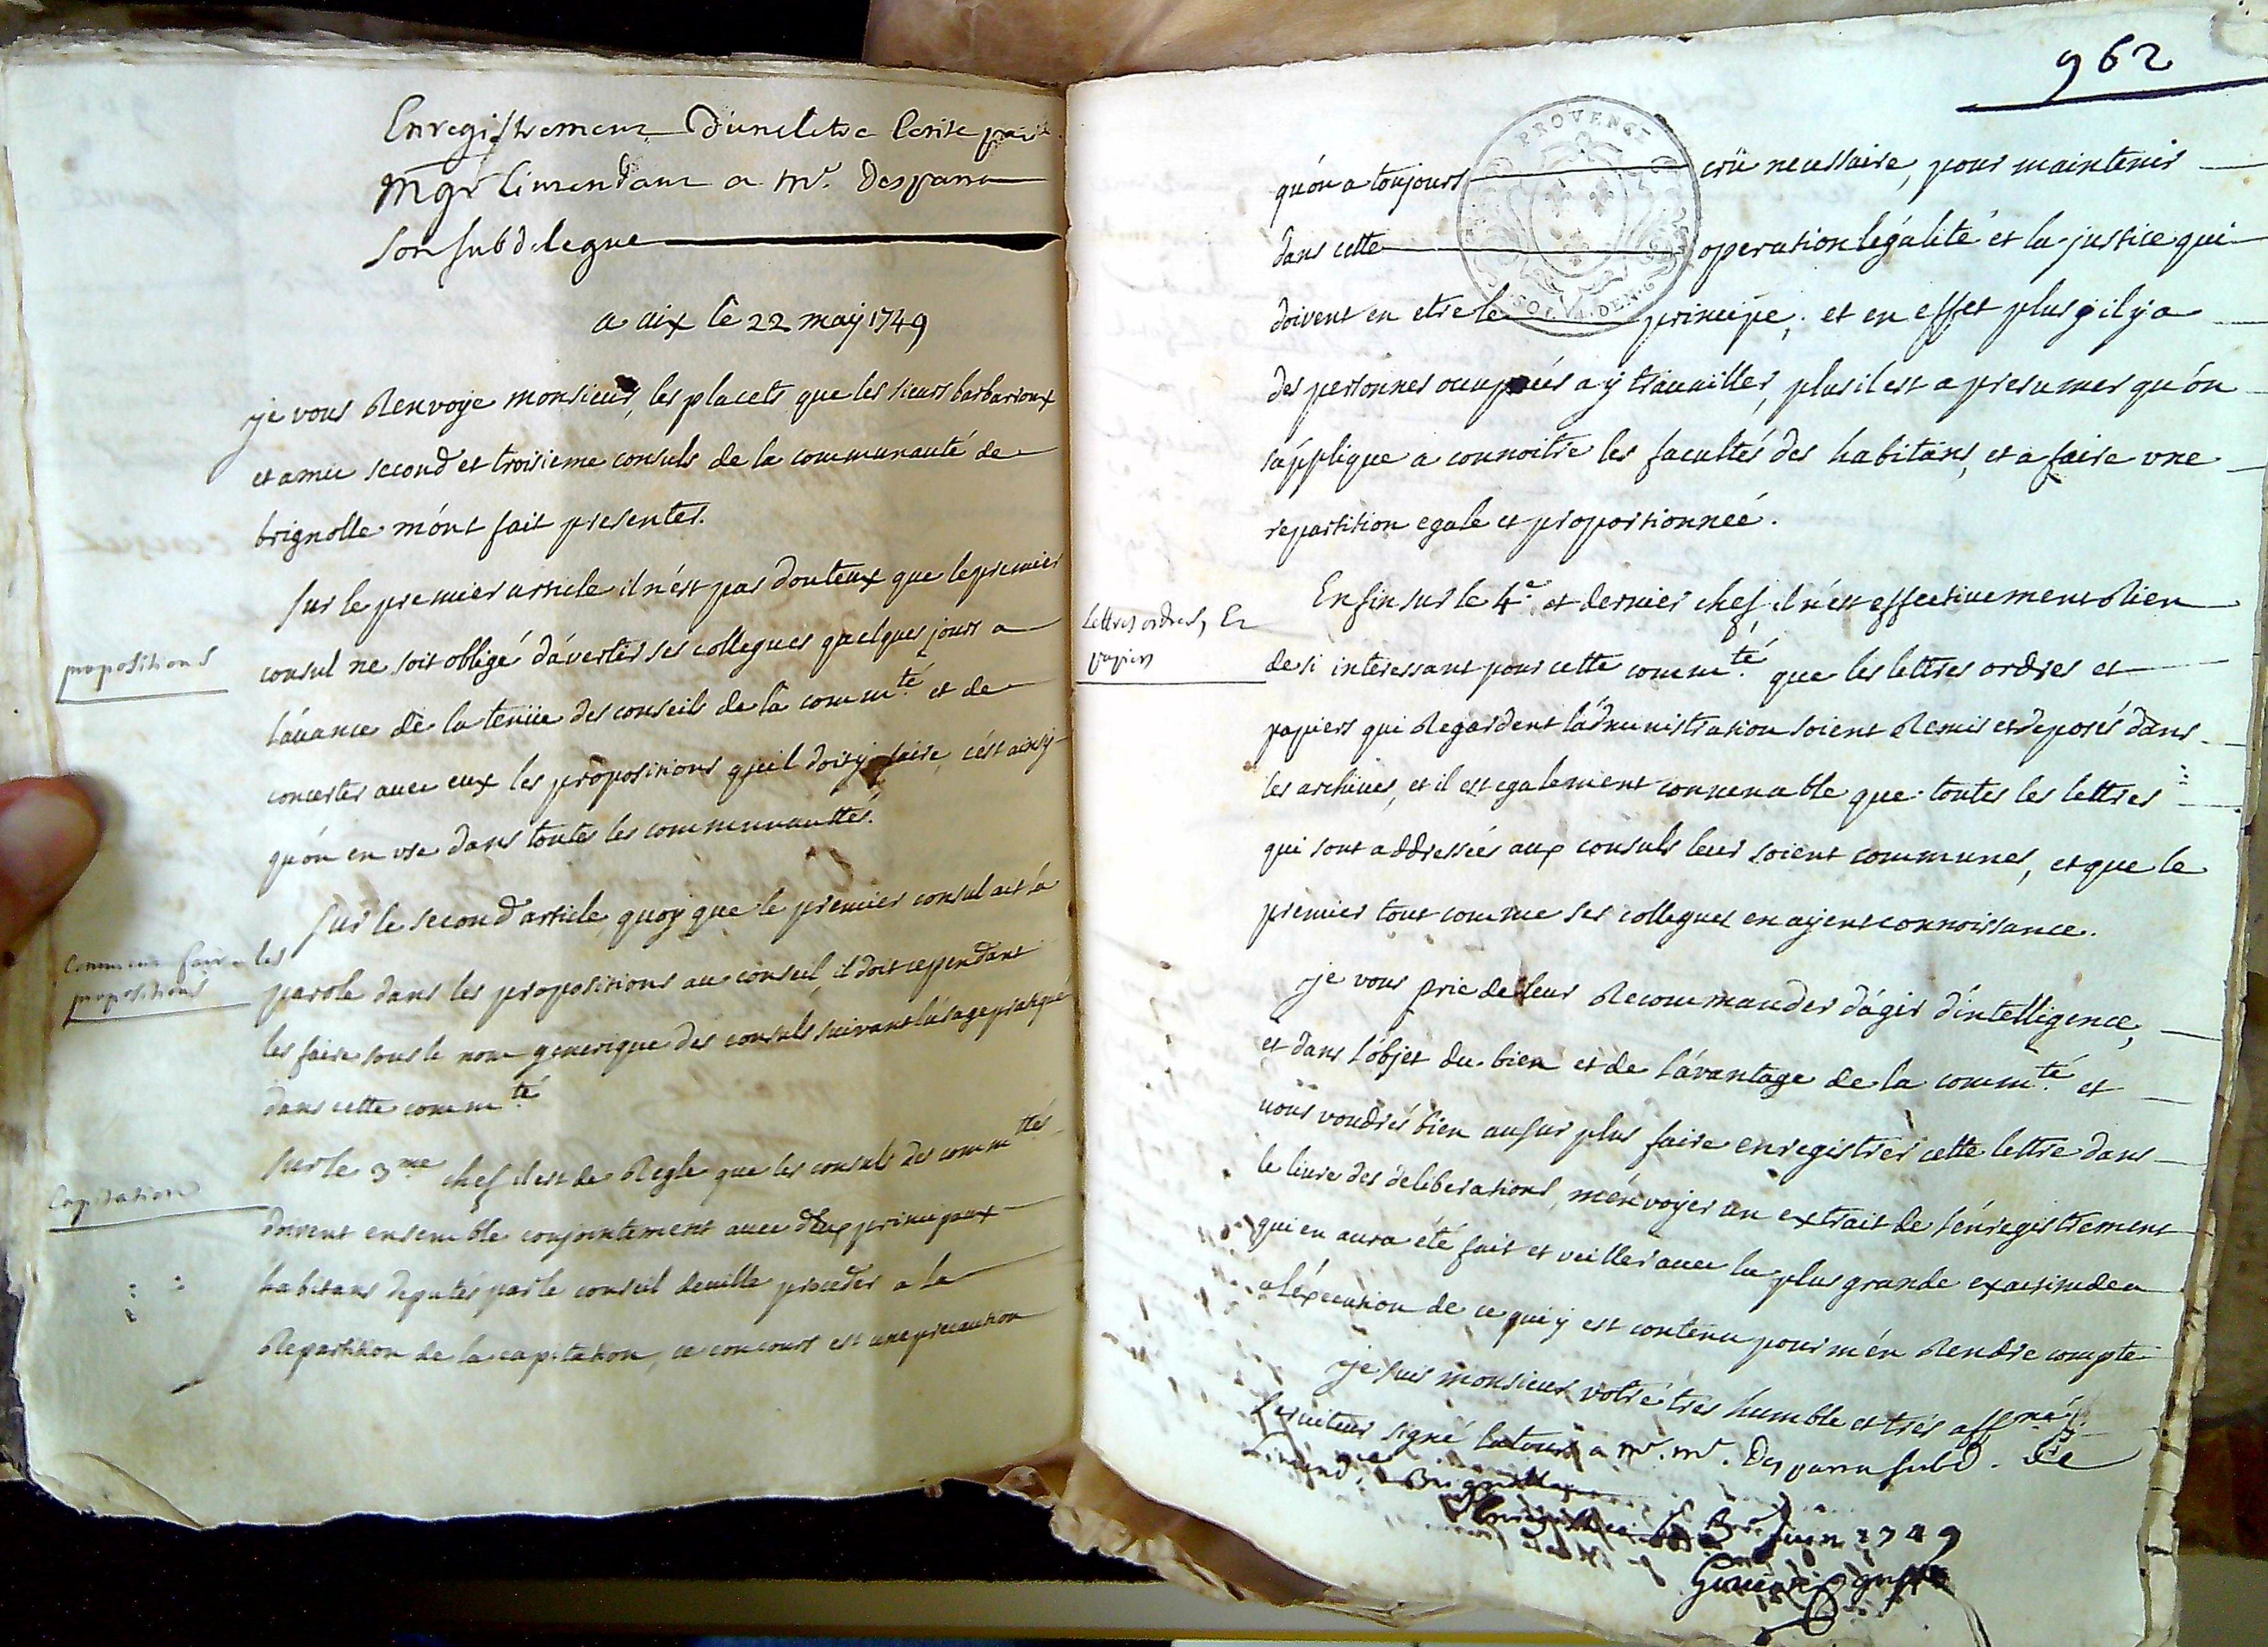 Enregistrement d'une letre Ecrite par
Mgr l'intendant a Mr. Desparra
son subdelegue
a aix le 22 maÿ 1749
je vous Renvoye monsieur, les placets que les sieurs barbarroux
et amic second et troisieme consuls de la communauté de
brignolle m'ónt fait presenter.
propositions
Sur le premier article il n'est pas douteux que le premier
consul ne soit obligé d'ávertir ses collegues quelques jours a
l'áuance de la tenüe des conseils de la commté. et de
concerter auec eux les propositions qu'il doit y faire, c'ést ainsÿ
qu'ón en vse dans toutes les communauttés.
Comment faire les
propositions
Sur le second article, quoy que le premier consul ait la
parole dans les propositions au conseil, il doit cependant
les faire sous le nom generique des consuls suivant l'úsage pratiqué
dans cette commté
Capitation
Sur le 3me chef il est de Regle que les consuls des commttés
doivent ensemble conjointement auec deux principaux
habitans deputés par le conseil de uille proceder a la
Repartition de la capitation, ce concours est une precaution
962
PROVENCE
SOL. DEN. G
qu'ón a toujours crü necessaire, pour maintenir
dans cette operation légálité et la justice qui
doivent en etre le principe, et en effet plus il y a
des personnes occupées a ÿ trauailler, plus il est a presumer qu'ón
s'ápplique a connoitre les facultés des habitans, et a faire vne
repartition egale et proportionnée.
Lettres ordres, Et
papiers
Enfin sur le 4e. et dernier chef, il n'ést effectiuement Rien
de si interessant pour cette commté. que les lettres ordres et
papiers qui Regardent l'ádministration soient Remis et deposés dans
les archiues, et il est egalement conuenable que toutes les lettres
qui sont addressées aux consuls leur soient communes, et que le
premier tout comme ses collegues en ayent connoissance.
je vous prie de leur Recommander d'ágir d'íntelligence,
et dans l'óbjet du bien et de l'ávantage de la commté. et
uous voudrés bien au surplus faire enregistrer cette lettre dans
le liure des deliberations, m'énvoyer un extrait de l'énregistrement
qui en aura été fait et veiller auec la plus grande exactitude a
a l'éxecution de ce qui y est contenu pour m'én Rendre compte
je suis monsieur votre trés humble et trés affné.
seruiteur signé latour a Mr. Mr. Desparra subd. De
L'intend. a Brignolle
Enregistree le 3 juin 1749